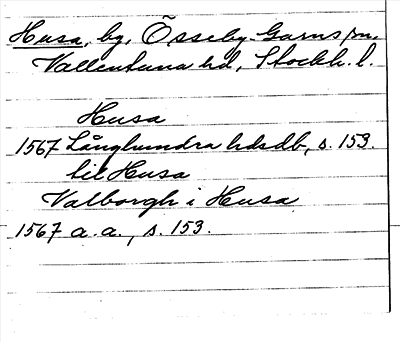 Husa, by, Össeby-Garns sn.
Vallentuna hd, Stockh. l.
Husa
1567 Långhundra hdsdb, s. 153.
till Husa
Valborgh i Husa
1567 a. a., s. 153.